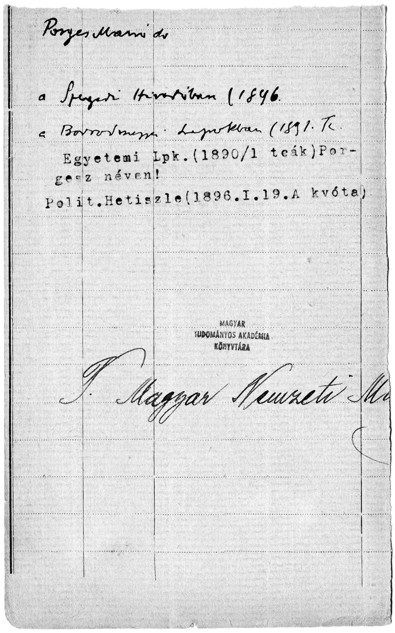 Porges Manó dr
a Szegedi Hiradóban (1846.
a Borsodmegyei Lapokban (1891. Tc.
Egyetemi Lpk.(1890/1 tcák)Por-
gesz néven!
Polit.Hetiszle(1896.I.19.A kvóta)
MAGYAR
TUDOMÁNYOS AKADÉMIA
KÖNYVTÁRA
T. Magyar Nemzeti Mu